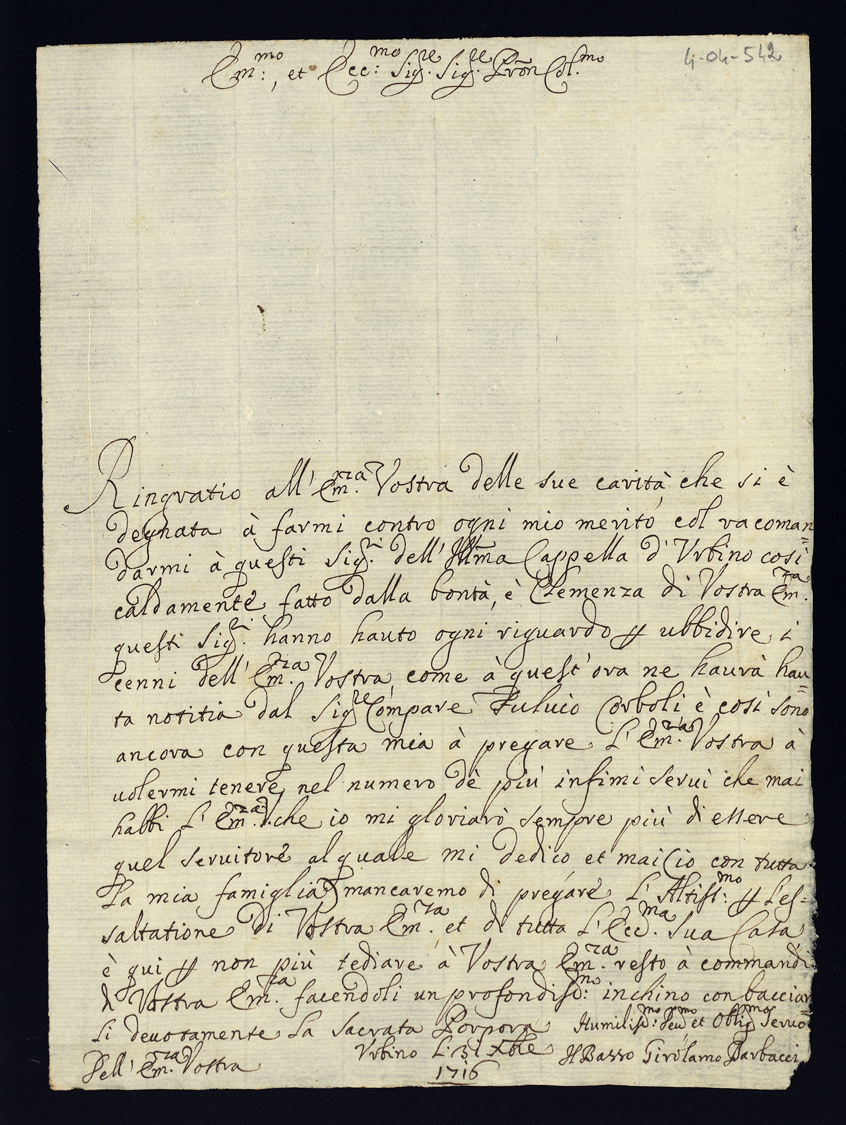 4-04-542
Em:mo, et Ecc:mo Sig.re Sig.re Pron Col.mo
Ringratio all' Em.za Vostra delle sue carità, che si è
degnata à farmi contro ogni mio merito, col racoman=
darmi à questi Sig.ri dell' Illma Cappella d'Urbino così
caldamente fatto dalla bontà, è Clemenza di Vostra Em.za
questi Sig.ri hanno hauto ogni riguardo p ubbidire i
cenni dell' Em.za Vostra, come à quest'ora ne haurà hau=
ta notitia dal Sig.re Compare Fuluio Corboli è così sono
ancora con questa mia à pregare L' Em.za Vostra à
uolermi tenere nel numero dè più infimi serui che mai
habbi L' Em.za V. che io mi gloriarò sempre più di essere
quel seruitore al quale mi dedico et mai io con tutta
la mia famiglia mancaremo di pregare L' Altiss:mo p L'es-
saltatione di Vostra Em.za et di tutta L' Ecc.ma sua Casa
è qui p non più tediare à Vostra Em.za resto à commandi
di Vostra Em.za facendoli un profondiss:mo inchino con bacciar
li deuotamente la Sacrata Porpora Humiliss:mo Deu.mo et Oblig.mo Seruo
Dell' Em.za Vostra Urbino Li 31 Xbre Il Basso Girolamo Barbacci
1716